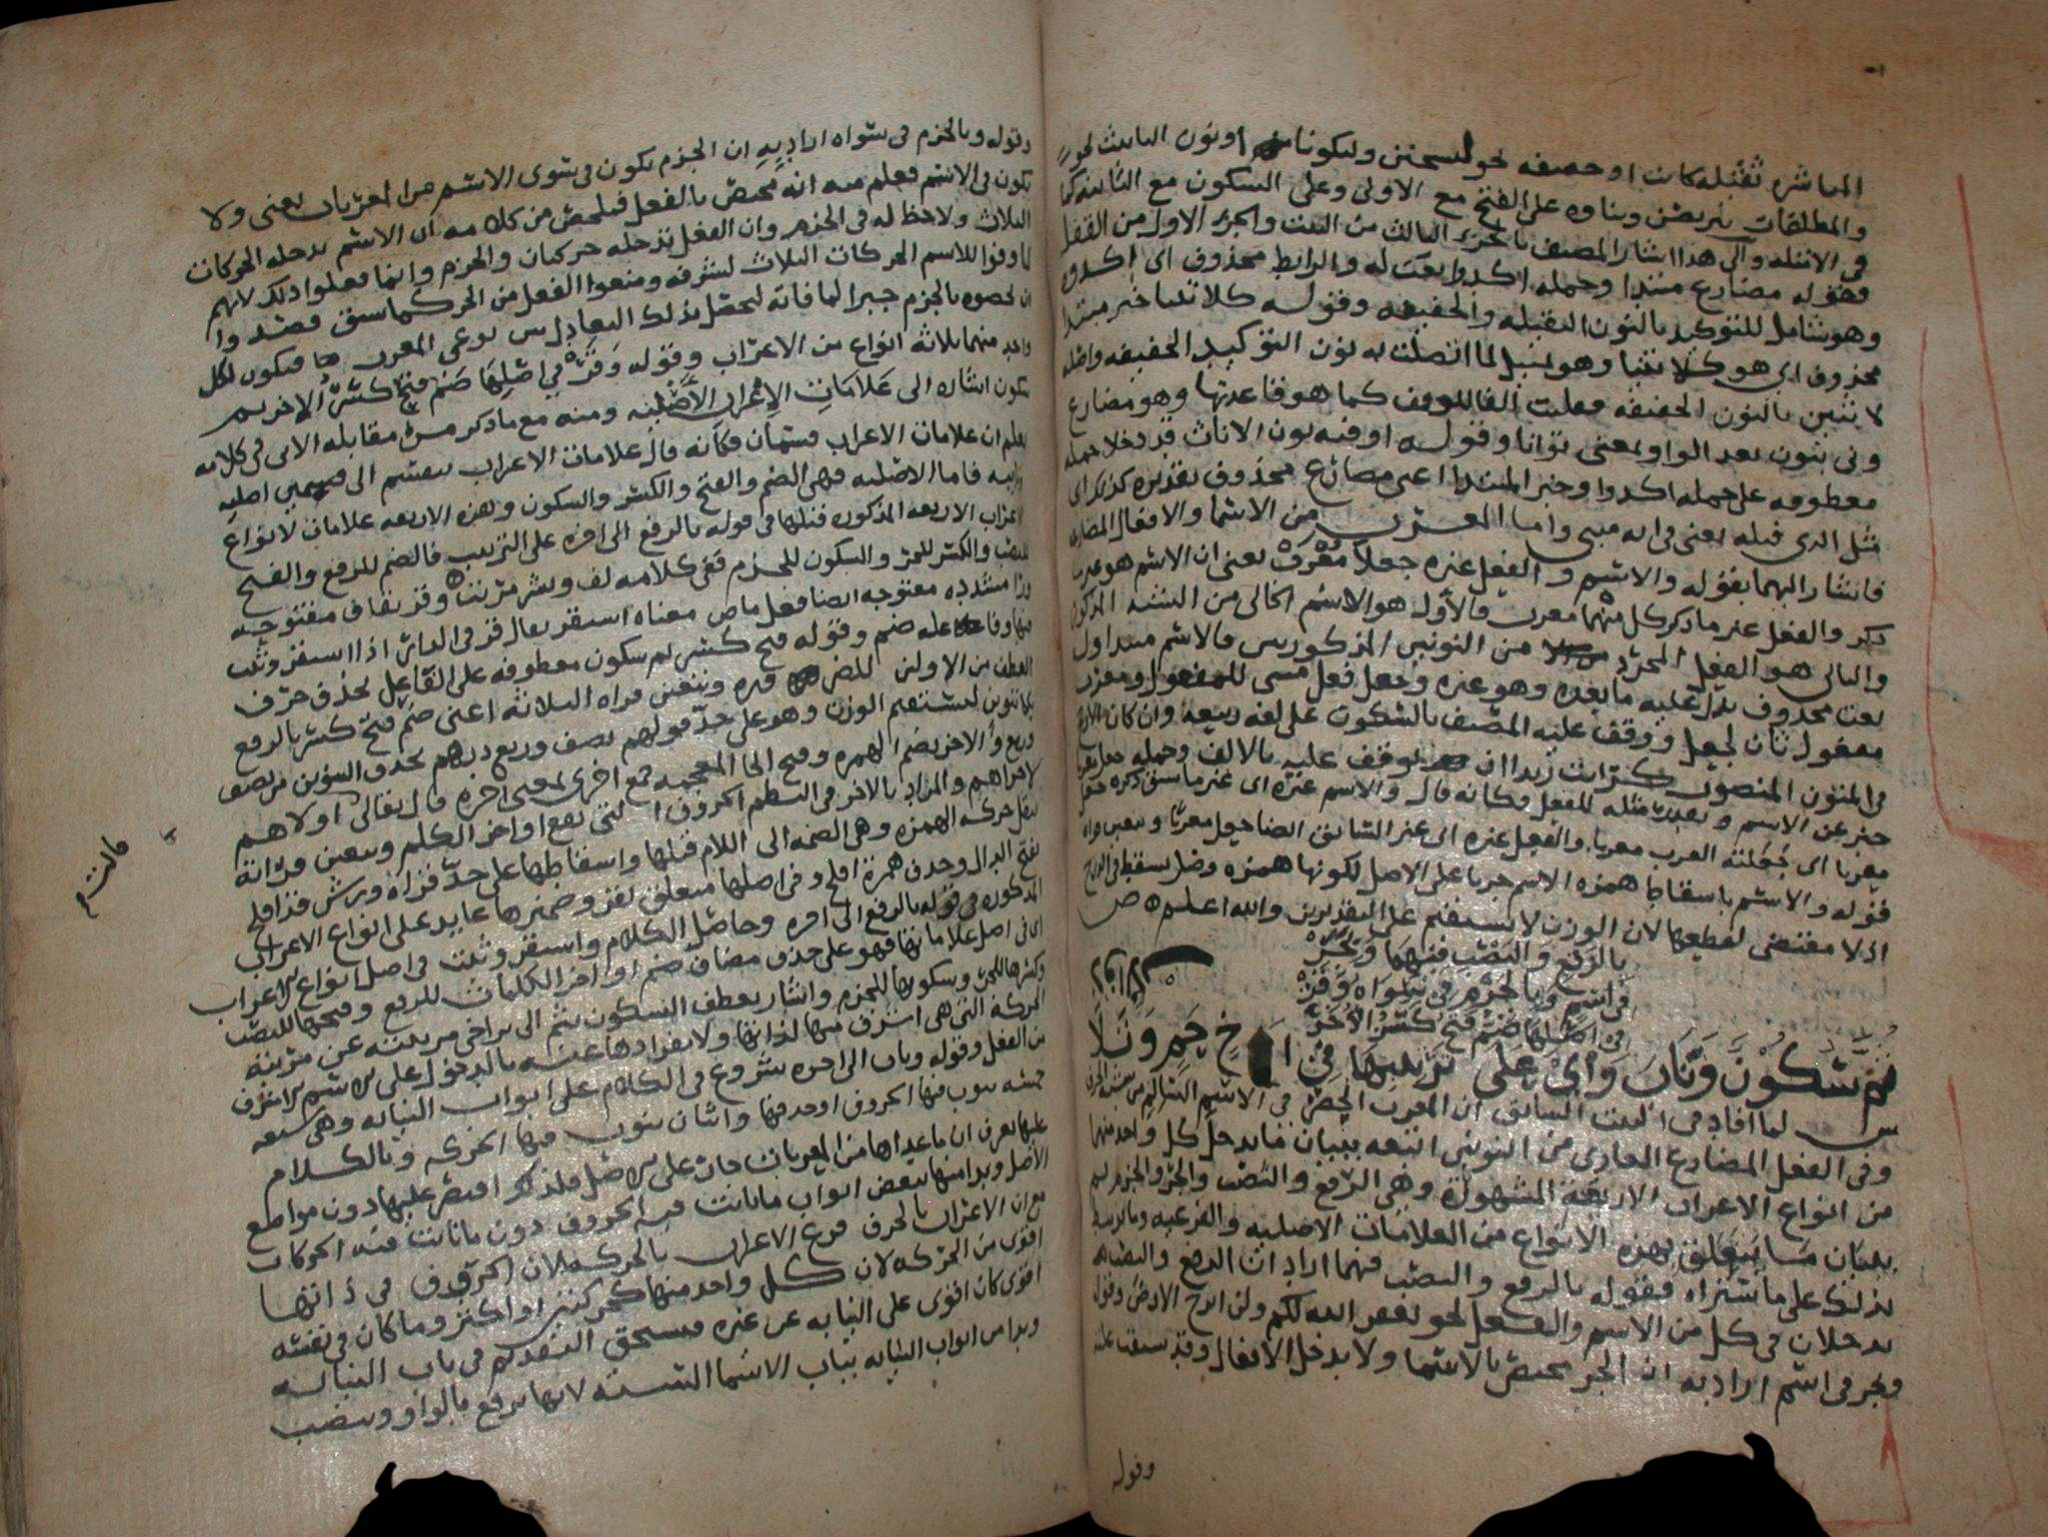 المباشره ثقيله كانت او خفيفه نحو ليسجنن وليكونا او نون الاناث نحو
والمطلقات يتربصن وبناوه على الفتح مع الاولى وعلى السكون مع الثانيه كما
فى الامثله والى هذا اشار المصنف بالجزء الثالث من البيت والجزء الاول من القفل
فقوله مضارع مبتدا وجمله اكدوا نعت له والرابط محذوف اى اكدوه
وهو شامل للتوكيد بالنون الثقيله والخفيفه وقوله كلا تنيا خبر مبتدا
محذوف اى هو كلا تنيا وهو تمثيل لما اتصلت به نون التوكيد الخفيفه واصله
لا تنين بالنون الخفيفه فقلبت الفا للوقف كما هو قاعدتها وهو مضارع
ونى بنون بعد الواو بمعنى توانا وقوله او فيه نون الاناث قد دخلا جمله
معطوفه على جمله اكدوا وخبر المبتدا اعنى مضارع محذوف تقديره كذلك اى
مثل الذى قبله يعنى فى انه مبنى واما المعرب من الاسما والافعال المضارعه
فاشار اليهما بقوله والاسم والفعل غيره جعلا معرب يعنى ان الاسم هو غير ما
ذكر والفعل غير ما ذكر كل منهما معرب فالاول هو الاسم الخالى من الشبه المذكور
والثانى هو الفعل المجرد من النونين المذكورين فالاسم مبتدا اول
نعت محذوف يدل عليه ما بعده وهو غيره وجعل فعل مبنى للمفعول ومعرب
مفعول ثان لجعل ووقف عليه المصنف بالسكون على لغه ربيعه وان كان
فى المنون المنصوب كرايت زيدا ان يوقف عليه بالالف وجمله جعل معربا
خبر عن الاسم ويقدر مثله للفعل فكانه قال والاسم غيره اى غير ما سبق ذكره جعل
معربا اى جعلته العرب معربا والفعل غيره اى غير السابق ايضا جعل معربا
قوله والاسم باسقاط همزه الاسم جريا على الاصل لكونها همزه وصل تسقط فى الدرج
اذ لا مقتضى لقطعها لان الوزن لا يستقيم على التقديرين والله اعلم ص
بالرفع والنصب فيهما وبجر
فى اسم وبالجزم فى سواه وقر
فى اصلها ضم فتح كسر الاخر
ثم سكون وناب واى على ترتيبها فى اخ حم وتلا
ش لما افاد فى البيت السابق ان المعرب انحصر فى الاسم السالم من شبه الحرف
وفى الفعل المضارع العارى من النونين اتبعه ببيان ما يدخل كل واحد منهما
من انواع الاعراب الاربعه المشهوره وهى الرفع والنصب والجر والجزم ثم
ببيان ما يتعلق بهذه الانواع من العلامات الاصليه والفرعيه
بذلك على ما ستراه فقوله بالرفع والنصب فيهما اراد ان الرفع والنصب
يدخلان فى كل من الاسم والفعل نحو يغفر الله لكم ولن ابرح الارض وقوله
وبجر فى اسم اراد به ان الجر مختص بالاسما ولا يدخل الافعال وقد سبقت علته
وقوله
وقوله وبالجزم فى سواه اراد به ان الجزم يكون فى سوى الاسم من المعربات يعنى ولا
يكون فى الاسم فعلم منه انه مختص بالفعل فيلخص من كلامه ان الاسم تدخله الحركات
الثلاث ولا حظ له فى الجزم وان الفعل تدخله حركتان والجزم وانما فعلوا ذلك لانهم
لما وفوا للاسم الحركات الثلاث لشرفه ومنعوا الفعل من الجر كما سبق قصدوا
ان يخصوه بالجزم جبرا لما فاته ليحصل بذلك التعادل بين نوعى المعرب فيكون لكل
واحد منهما ثلاثه انواع من الاعراب وقوله وقر فى اصلها ضم فتح كسر الاخر ثم
سكون اشاره الى علامات الاعراب الاصليه ومنه مع ما ذكر من مقابله الاتى فى كلامه
يعلم ان علامات الاعراب قسمان فكانه قال علامات الاعراب تنقسم الى قسمين اصليه
ونيابيه فاما الاصليه فهى الضم والفتح والكسر والسكون وهذه الاربعه علامات لانواع
الاعراب الاربعه المذكوره قبلها فى قوله بالرفع الى اخره على الترتيب فالضم للرفع والفتح
للنصب والكسر للجر والسكون للجزم ففى كلامه لف ونشر مرتب وقر بقاف مفتوحه
ورا مشدده مفتوحه ايضا فعل ماض معناه استقر يقال قر فى المكان اذا استقر وثبت
فيها وفاعله ضم وقوله فتح كسر ثم سكون معطوفه على الفاعل بحذف حرف
العطف من الاولين للضروره ويتعين قراه الثلاثه اعنى ضم فتح كسر بالرفع
بلا تنوين ليستقيم الوزن وهو على حد قولهم نصف وربع درهم بحذف التنوين من نصف
وربع والاخر بضم الهمزه وفتح الخا المعجمه جمع اخرى بمعنى اخره قال تعالى اولاهم
لاخراهم والمراد بالاخر فى النظم الحروف التى تقع اواخر الكلم ويتعين قراته
بنقل حركه الهمزه وهى الضمه الى اللام قبلها واسقاطها على حد قراه ورش قد افلح
بفتح الدال وحذف همزة افلح وفى اصلها متعلق بقر وضميرها عايد على انواع الاعراب
المذكوره فى قوله بالرفع الى اخره وحاصل الكلام واستقر وثبت فى اصل انواع الاعراب
اى فى اصل علاماتها فهو على حذف مضاف ضم اواخر الكلمات للرفع وفتحها للنصب
وكسرها للجر وسكونها للجزم واشار بعطف السكون بثم الى تراخى مرتبته عن مرتبة
الحركه التى هى اشرف منها لذاتها ولانفرادها عنه بالدخول على الاسم الاشرف
من الفعل وقوله وناب الى اخره شروع فى الكلام على ابواب النيابه وهى سبعه
خمسه تنوب فيها الحروف او حذفها واثنان تنوب فيها الحركه وبالكلام
عليها يعرف ان ما عداها من المعربات جات على الاصل فلذلك اقتصر عليها دون مواضع
الاصل وبدا منها ببعض ابواب ما نابت فيه الحروف دون ما نابت فيه الحركات
مع ان الاعراب بالحرف فرع الاعراب بالحركه لان الحروف فى ذاتها
اقوى من الحركه لان كل واحد منها كحركتين او اكثر وما كان فى نفسه
اقوى كان اقوى على النيابه عن غيره فيستحق التقديم فى باب النيابه
وبدا من ابواب النيابه بباب الاسما السته لانها ترفع بالواو وتنصب
قالت